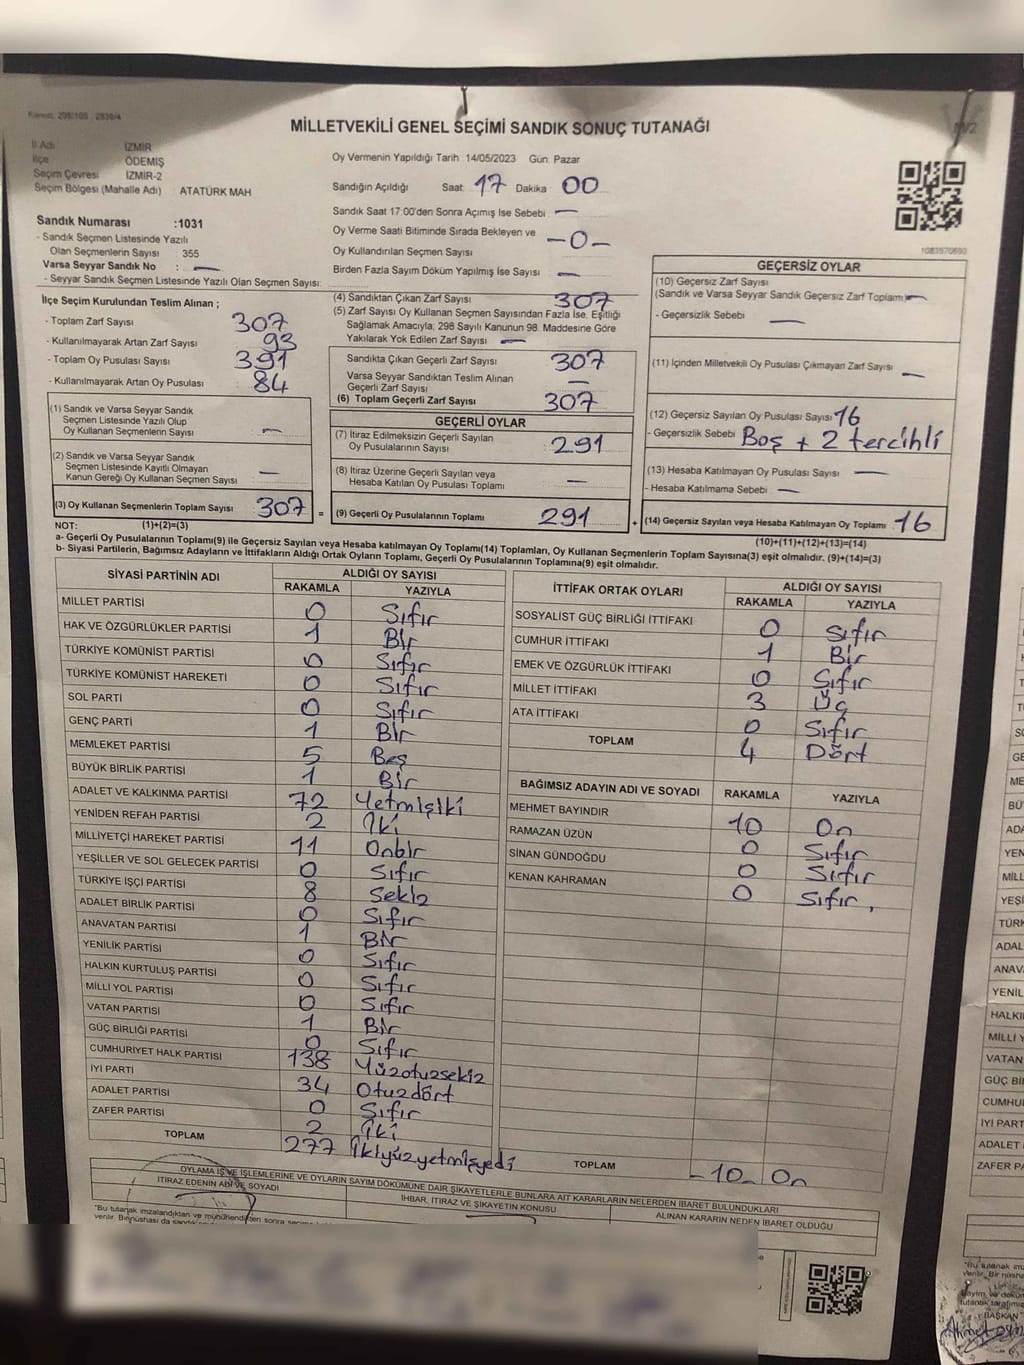 MİLLETVEKİLİ GENEL SEÇİMİ SANDIK SONUÇ TUTANAĞI
İl Adı İZMİR
İlçe ÖDEMİŞ
Seçim Çevresi İZMİR-2
Seçim Bölgesi (Mahalle Adı) ATATÜRK MAH
Sandık Numarası :1031
- Sandık Seçmen Listesinde Yazılı
Olan Seçmenlerin Sayısı : 355
Varsa Seyyar Sandık No : —
- Seyyar Sandık Seçmen Listesinde Yazılı Olan Seçmen Sayısı:
Oy Vermenin Yapıldığı Tarih 14/05/2023 Gün Pazar
Sandığın Açıldığı Saat 17 Dakika 00
Sandık Saat 17:00'den Sonra Açımış İse Sebebi —
Oy Verme Saati Bitiminde Sırada Bekleyen ve
Oy Kullandırılan Seçmen Sayısı —0—
Birden Fazla Sayım Döküm Yapılmış İse Sayısı —
İlçe Seçim Kurulundan Teslim Alınan ;
- Toplam Zarf Sayısı 307
- Kullanılmayarak Artan Zarf Sayısı 93
- Toplam Oy Pusulası Sayısı 391
- Kullanılmayarak Artan Oy Pusulası 84
(1) Sandık ve Varsa Seyyar Sandık
Seçmen Listesinde Yazılı Olup
Oy Kullanan Seçmenlerin Sayısı —
(2) Sandık ve Varsa Seyyar Sandık
Seçmen Listesinde Kayıtlı Olmayan
Kanun Gereği Oy Kullanan Seçmen Sayısı —
(3) Oy Kullanan Seçmenlerin Toplam Sayısı 307 =
(4) Sandıktan Çıkan Zarf Sayısı 307
(5) Zarf Sayısı Oy Kullanan Seçmen Sayısından Fazla İse, Eşitliği
Sağlamak Amacıyla, 298 Sayılı Kanunun 98. Maddesine Göre
Yakılarak Yok Edilen Zarf Sayısı —
Sandıkta Çıkan Geçerli Zarf Sayısı 307
Varsa Seyyar Sandıktan Teslim Alınan
Geçerli Zarf Sayısı —
(6) Toplam Geçerli Zarf Sayısı 307
GEÇERLİ OYLAR
(7) İtiraz Edilmeksizin Geçerli Sayılan
Oy Pusulalarının Sayısı 291
(8) İtiraz Üzerine Geçerli Sayılan veya
Hesaba Katılan Oy Pusulası Toplamı —
(9) Geçerli Oy Pusulalarının Toplamı 291 +
1083570693
GEÇERSİZ OYLAR
(10) Geçersiz Zarf Sayısı
(Sandık ve Varsa Seyyar Sandık Geçersiz Zarf Toplamı) —
- Geçersizlik Sebebi —
(11) İçinden Milletvekili Oy Pusulası Çıkmayan Zarf Sayısı —
(12) Geçersiz Sayılan Oy Pusulası Sayısı 16
- Geçersizlik Sebebi Boş + 2 tercihli
(13) Hesaba Katılmayan Oy Pusulası Sayısı —
- Hesaba Katılmama Sebebi —
(14) Geçersiz Sayılan veya Hesaba Katılmayan Oy Toplamı 16
NOT: (1)+(2)=(3) (10)+(11)+(12)+(13)=(14)
a- Geçerli Oy Pusulalarının Toplamı(9) ile Geçersiz Sayılan veya Hesaba katılmayan Oy Toplamı(14) Toplamları, Oy Kullanan Seçmenlerin Toplam Sayısına(3) eşit olmalıdır. (9)+(14)=(3)
b- Siyasi Partilerin, Bağımsız Adayların ve İttifakların Aldığı Ortak Oyların Toplamı, Geçerli Oy Pusulalarının Toplamına(9) eşit olmalıdır.
SİYASİ PARTİNİN ADI ALDIĞI OY SAYISI
RAKAMLA YAZIYLA
MİLLET PARTİSİ 0 Sıfır
HAK VE ÖZGÜRLÜKLER PARTİSİ 1 Bir
TÜRKİYE KOMÜNİST PARTİSİ 0 Sıfır
TÜRKİYE KOMÜNİST HAREKETİ 0 Sıfır
SOL PARTİ 0 Sıfır
GENÇ PARTİ 1 Bir
MEMLEKET PARTİSİ 5 Beş
BÜYÜK BİRLİK PARTİSİ 1 Bir
ADALET VE KALKINMA PARTİSİ 72 Yetmişiki
YENİDEN REFAH PARTİSİ 2 İki
MİLLİYETÇİ HAREKET PARTİSİ 11 Onbir
YEŞİLLER VE SOL GELECEK PARTİSİ 0 Sıfır
TÜRKİYE İŞÇİ PARTİSİ 8 Sekiz
ADALET BİRLİK PARTİSİ 0 Sıfır
ANAVATAN PARTİSİ 1 Bir
YENİLİK PARTİSİ 0 Sıfır
HALKIN KURTULUŞ PARTİSİ 0 Sıfır
MİLLİ YOL PARTİSİ 0 Sıfır
VATAN PARTİSİ 1 Bir
GÜÇ BİRLİĞİ PARTİSİ 0 Sıfır
CUMHURİYET HALK PARTİSİ 138 Yüzotuzsekiz
İYİ PARTİ 34 Otuzdört
ADALET PARTİSİ 0 Sıfır
ZAFER PARTİSİ 2 İki
TOPLAM 277 İkiyüzyetmişyedi
İTTİFAK ORTAK OYLARI ALDIĞI OY SAYISI
RAKAMLA YAZIYLA
SOSYALİST GÜÇ BİRLİĞİ İTTİFAKI 0 Sıfır
CUMHUR İTTİFAKI 1 Bir
EMEK VE ÖZGÜRLÜK İTTİFAKI 0 Sıfır
MİLLET İTTİFAKI 3 Üç
ATA İTTİFAKI 0 Sıfır
TOPLAM 4 Dört
BAĞIMSIZ ADAYIN ADI VE SOYADI RAKAMLA YAZIYLA
MEHMET BAYINDIR 10 On
RAMAZAN ÜZÜN 0 Sıfır
SİNAN GÜNDOĞDU 0 Sıfır
KENAN KAHRAMAN 0 Sıfır
TOPLAM -10- On
OYLAMA İŞ VE İŞLEMLERİNE VE OYLARIN SAYIM DÖKÜMÜNE DAİR ŞİKAYETLERLE BUNLARA AİT KARARLARIN NELERDEN İBARET BULUNDUKLARI
İTİRAZ EDENİN ADI VE SOYADI İHBAR, İTİRAZ VE ŞİKAYETİN KONUSU ALINAN KARARIN NEDEN İBARET OLDUĞU